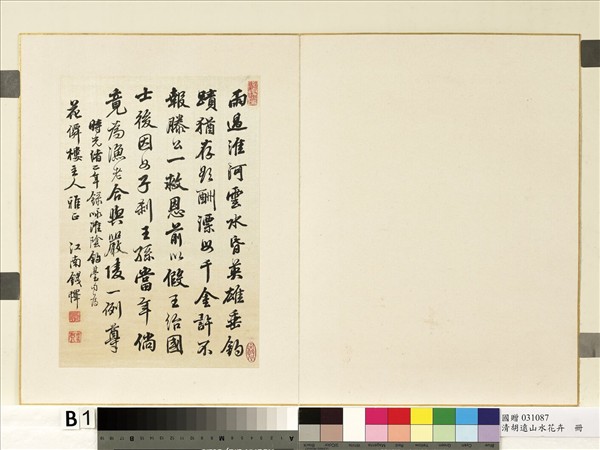 雨過淮河雲水昏英雄垂釣
蹟猶存酬漂母千金許不
報滕公一救恩前以假王紿國
士後因女子剎王孫當年倘
竟為漁老合與嚴陵一例尊
時光緒二年錄咏淮陰釣臺
花僻樓主人雅正 江南錢
B 1
國贈 031087
清胡遠山水花卉 冊